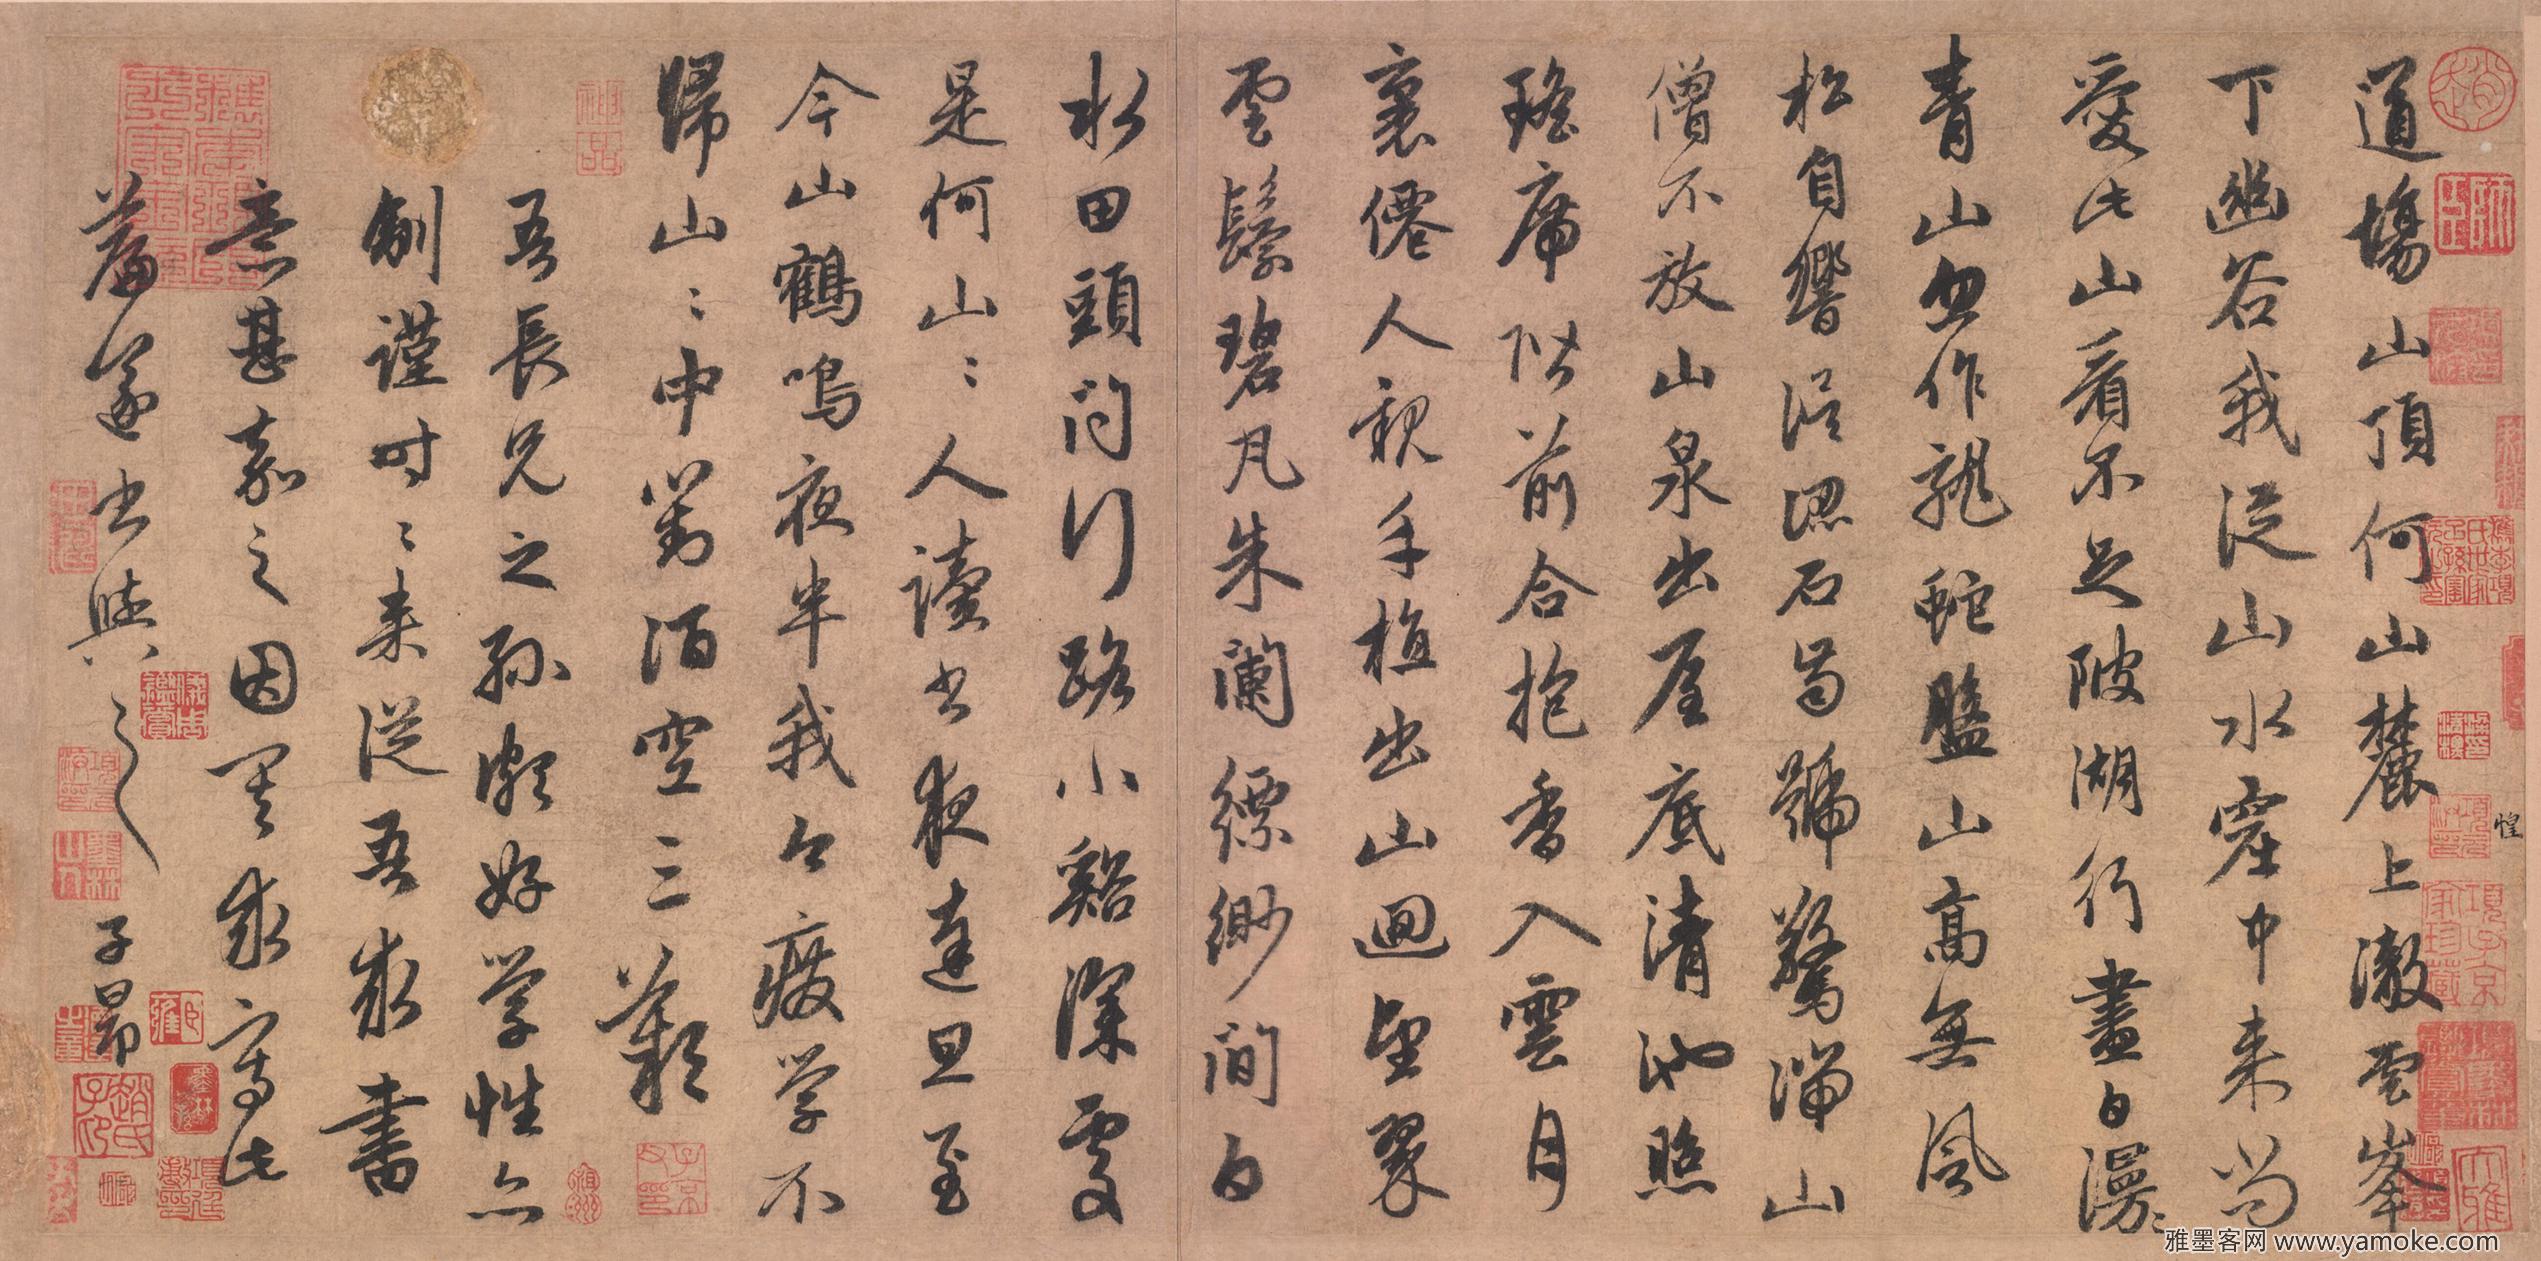 道場山頂何山麓上澈雲峯
下幽谷我從山水窟中来尚
愛此山看不足陂湖行盡白漫〻
青山忽作龍蛇盤山高無風
松自響誤認石齒號驚湍山
僧不放山泉出屋底清池照
瑤席階前合抱香入雲月
裏僊人親手植出山迴望翠
雲鬟碧瓦朱闌縹緲間白
水田頭問行路小谿深處
是何山〻人讀書夜達旦至
今山鶴鳴夜半我今廢學不
歸山〻中對酒空三歎
吾長兄之孫頗好學性亦
謹時〻来從吾求書
意甚嘉之因其求寫此
篇遂書與之 子昂
惶
神品
雅墨客网 www.yamoke.com